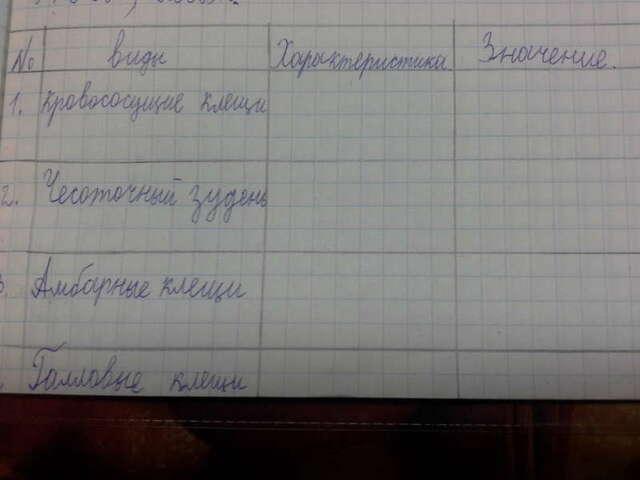 № виды Характеристика Значение.
1. Кровососущие клещи
2. Чесоточный зудень
3. Амбарные клещи
Галловые клещи